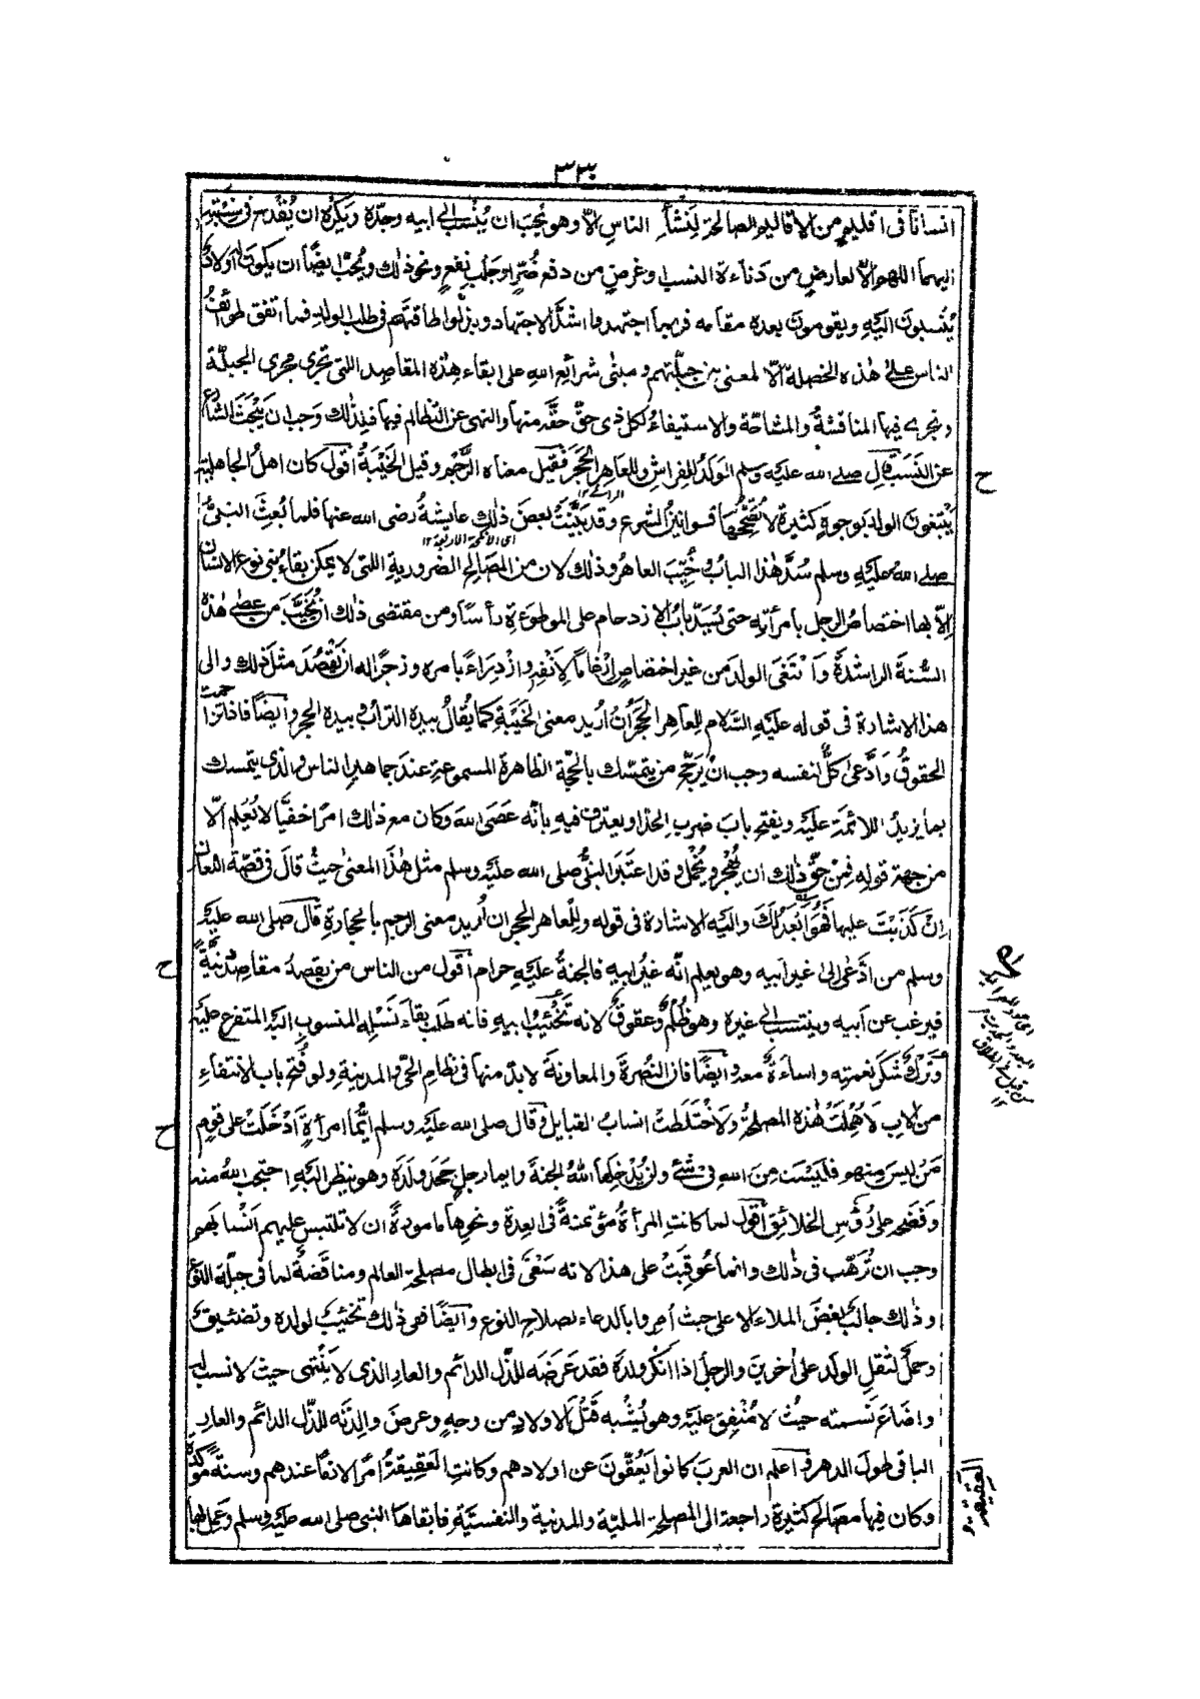 ٣٣٠
انسانًا فى اقليم من الاقاليم الصالحة لِنَشْأِ الناس الّا وهو يُحِبّ ان يُنْسب الى ابيه وجدّه ويَكْره ان يُقْدح فى نسبته
اليهما اللهم الّا لعارض من دَناءة النسب او غرض من دفع ضُرٍّ او جَلْب نفع ونحو ذلك ويُحِبّ ايضًا ان يكون له اولادٌ
يُنْسبون اليه ويقومون بعده مقامه فربما اجتهدوا اشدَّ الاجتهاد وبذلوا طاقتهم فى طلب الولد فما اتفق طوائفُ
الناس على هٰذه الخصلة الّا لمعنى من جبلّتهم ومبنٰى شرائع الله على ابقاء هذه المقاصد اللتى تجرى مجرى الجبلّة
وتجرى فيها المناقشة والمشاحّة والاستيفاءُ لكل ذى حقّ حقَّه منها والنهى عن التظالم فيها فلذلك وَجب ان يَبْحث الشارع
عن النَّسَب قال صلى الله عليه وسلم الوَلَدُ للفراش وللعاهر الحَجَر فقيل معناه الرَّجْم وقيل الخَيْبَةُ اقول كان اهلُ الجاهلية
يَبْتغون الولد بوجوهٍ كثيرة لا تُصحِّحُها قوانينُ الشرع وقد بَيَّنَتْ بعضَ ذلك عايشةُ رضى الله عنها فلما بُعث النبىُّ
اى الانكحة الاربعة ١٢
صلى الله عليه وسلم سُدَّ هٰذا البابُ وخُيِّب العاهر وذلك لان من المصالح الضرورية اللتى لا يمكن بقاءُ بنى نوع الانسان
الّا بها اختصاصُ الرجل بامرأته حتى يُسَدّ بابُ الازدحام على الموطوءة رأسًا ومن مقتضى ذلك ان يُخيَّب من عصٰى هٰذه
السُّنة الراشدة وابْتَغى الولد من غير اختصاص ارْغامًا لانفه وازْدِراءً بامره وزجرًا له ان يَقْصُد مثل ذلك والى
هذا الاشارة فى قوله عليه السّلام للعاهر الحجر ان اُريد معنى الخَيْبَة كما يُقال بيده التراب وبيده الحجر وايضًا فاذا تزاحمت
الحقوقُ وادَّعٰى كلٌّ لنفسه وجب ان يُرَجّح من يتمسّك بالحجّة الظاهرة المسموعة عند جماهير الناس والذى يتمسك
بما يزيدُ اللائمة عليه ويفتح بابَ ضرب الحدّ او يعترف فيه بانّه عَصَى الله وكان مع ذلك امرًا خفيًّا لا يُعْلم الّا
من جهة قوله فمِنْ حقّ ذلك ان يُهْجر ويُخْمل وقد اعتبَر النبىُّ صلى الله عليه وسلم مثل هٰذا المعنى حيثُ قال فى قصّة اللعان
اِنْ كَذَبْتَ عليها فهو اَبْعدُ لك واليه الاشارة فى قوله وللعاهر الحجر ان اُريد معنى الرجم بالحجارة قال صلى الله عليه
وسلم من ادَّعٰى الى غير ابيه وهو يعلم انّه غيرُ ابيه فالجنةُ عليه حرام اقول من الناس من يقصدُ مقاصد دَنيّةً
فيرغب عن ابيه وينتسب الى غيره وهو ظُلْمٌ وعقوقٌ لانه تَخْييبُ ابيه فانه طلب بقاءَ نَسْله المنسوب اليه المتفرع عليه
وتَرْكُ شكر نعمته واساءةٌ معه وايضًا فان النُّصرة والمعاونة لا بدّ منها فى نظام الحىّ والمدينة ولو فُتح باب الانتفاء
من الاب لاُهْملَتْ هذه المصلحة ولاخْتَلَطتْ انساب القبايل وقال صلى الله عليه وسلم ايُّما امرأةٍ ادْخَلَتْ على قوم
مَنْ ليس منهم فلَيْسَت مِنَ اللهِ فى شئ ولن يُدْخِلَها اللهُ الجنة وايما رجلٍ جَحَد ولَدَه وهو ينظر اليه احتجب اللهُ منه
وفَضَحه على رُؤُس الخلائق اقول لما كانتِ المرأةُ مؤتمنةً فى العدة ونحوها مامورةً ان لا تلتبس عليهم اَنْسابَهم
وجب ان تُرَهَّب فى ذلك وانما عُوقبَتْ على هذا لانه سَعْىٌ فى ابطال مصلحة العالم ومناقَضةٌ لما فى جبلّة النوع
وذلك جالبٌ بُغضَ الملاء الاعلى حيث اُمِروا بالدعاء لصلاح النوع وايضًا ففى ذلك تخييبٌ لولده وتضييقٌ
وحملٌ لثقل الولد على اٰخرين والرجل اذا انكر ولده فقد عَرَضه للذّل الدائم والعار الذى لا ينتهى حيث لا نسب له
واضاع نَسمته حيثُ لا مُنْفِق عليه وهو يُشْبه قَتْل الاولاد من وجهٍ وعرض والِدَته للذّل الدائم والعار
الباقى طولَ الدهر واعلم ان العربَ كانوا يَعُقّونَ عن اولادهم وكانت العَقِيقةُ امرًا لازمًا عندهم وسنةً مؤكدةً
وكان فيها مصَالحُ كثيرة راجعة الى المصلحة المليّة والمدنية والنفسيّة فابقاها النبى صلى الله عليه وسلم وعَمِلَ بها
ح
ح
ح
العقيقة